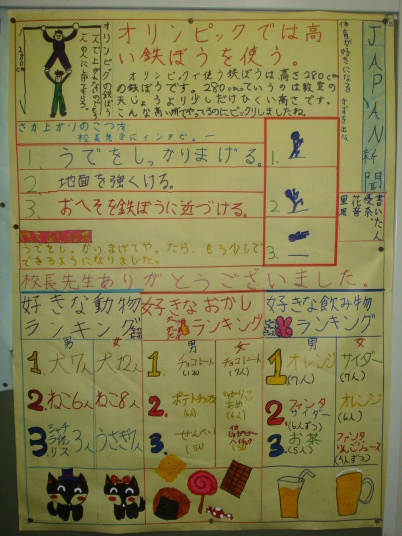 JAPAN新聞
書いた人
体育が好きになる
オリンピックでは高
い鉄ぼうを使う。
オリンピックの鉄ぼう
280cm
オリンピックで使う鉄ぼうは高さ280cm
の鉄ぼうです。280cmっていうのは教室の
天じょうより少しだけひくい高さです。
こんな高い所でやってるのにビックリしましたね。
さか上がりのこつを
校長先生にインタビュー
1. うでをしっかりまげる。
2. 地面を強くける。
3. おへそを鉄ぼうに近づける。
1.
2.
3.
うでをしっかりまげてやったら、もう少しで
できるようになりました。
校長先生ありがとうございました。
好きな動物
ランキング
男 女
1. 犬7人 犬12人
2. ねこ6人 ねこ8人
3. 3人 うさぎ7人
好きなおかし
ランキング
男 女
1. チョコレート チョコレート
2. ポテトチップス
3. せんべい
好きな飲み物
ランキング
男 女
1 オレンジ (7人) サイダー (7人)
2. ファンタ サイダー (6人ずつ) オレンジ (6人)
3. お茶 (5人) ファンタ りんごジュース